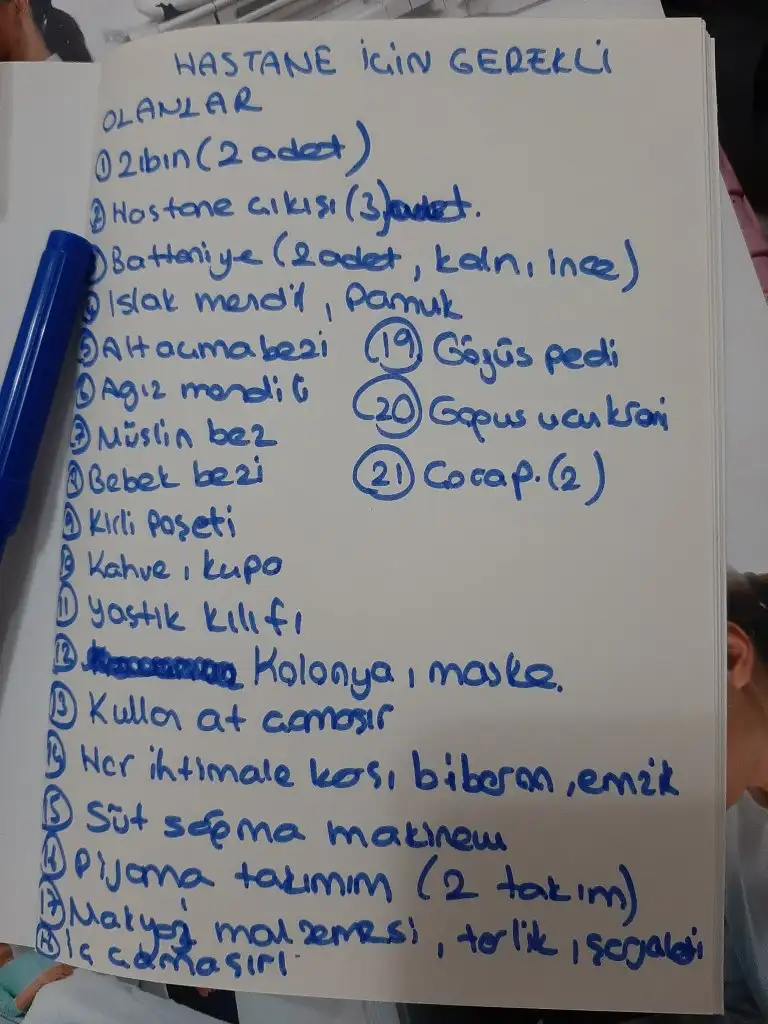 HASTANE İÇİN GEREKLİ
OLANLAR
① Zıbın (2 adet)
② Hastane çıkışı (3) adet.
③ Battaniye (2 adet, kalın, ince)
④ Islak mendil, pamuk
⑤ Alt açma bezi
⑥ Ağız mendili
⑦ Müslin bez
⑧ Bebek bezi
⑨ Kirli poşeti
⑩ Kahve, kupa
⑪ Yastık kılıfı
⑫ Kolonya, maske.
⑬ Kullan at çamaşır
⑭ Her ihtimale karşı biberon, emzik
⑮ Süt sağma makinem
⑯ Pijama takımım (2 takım)
⑰ Makyaj malzemesi, terlik, şarj aleti
⑱ İç çamaşırı
⑲ Göğüs pedi
⑳ Göğüs ucu kremi
㉑ Çorap. (2)